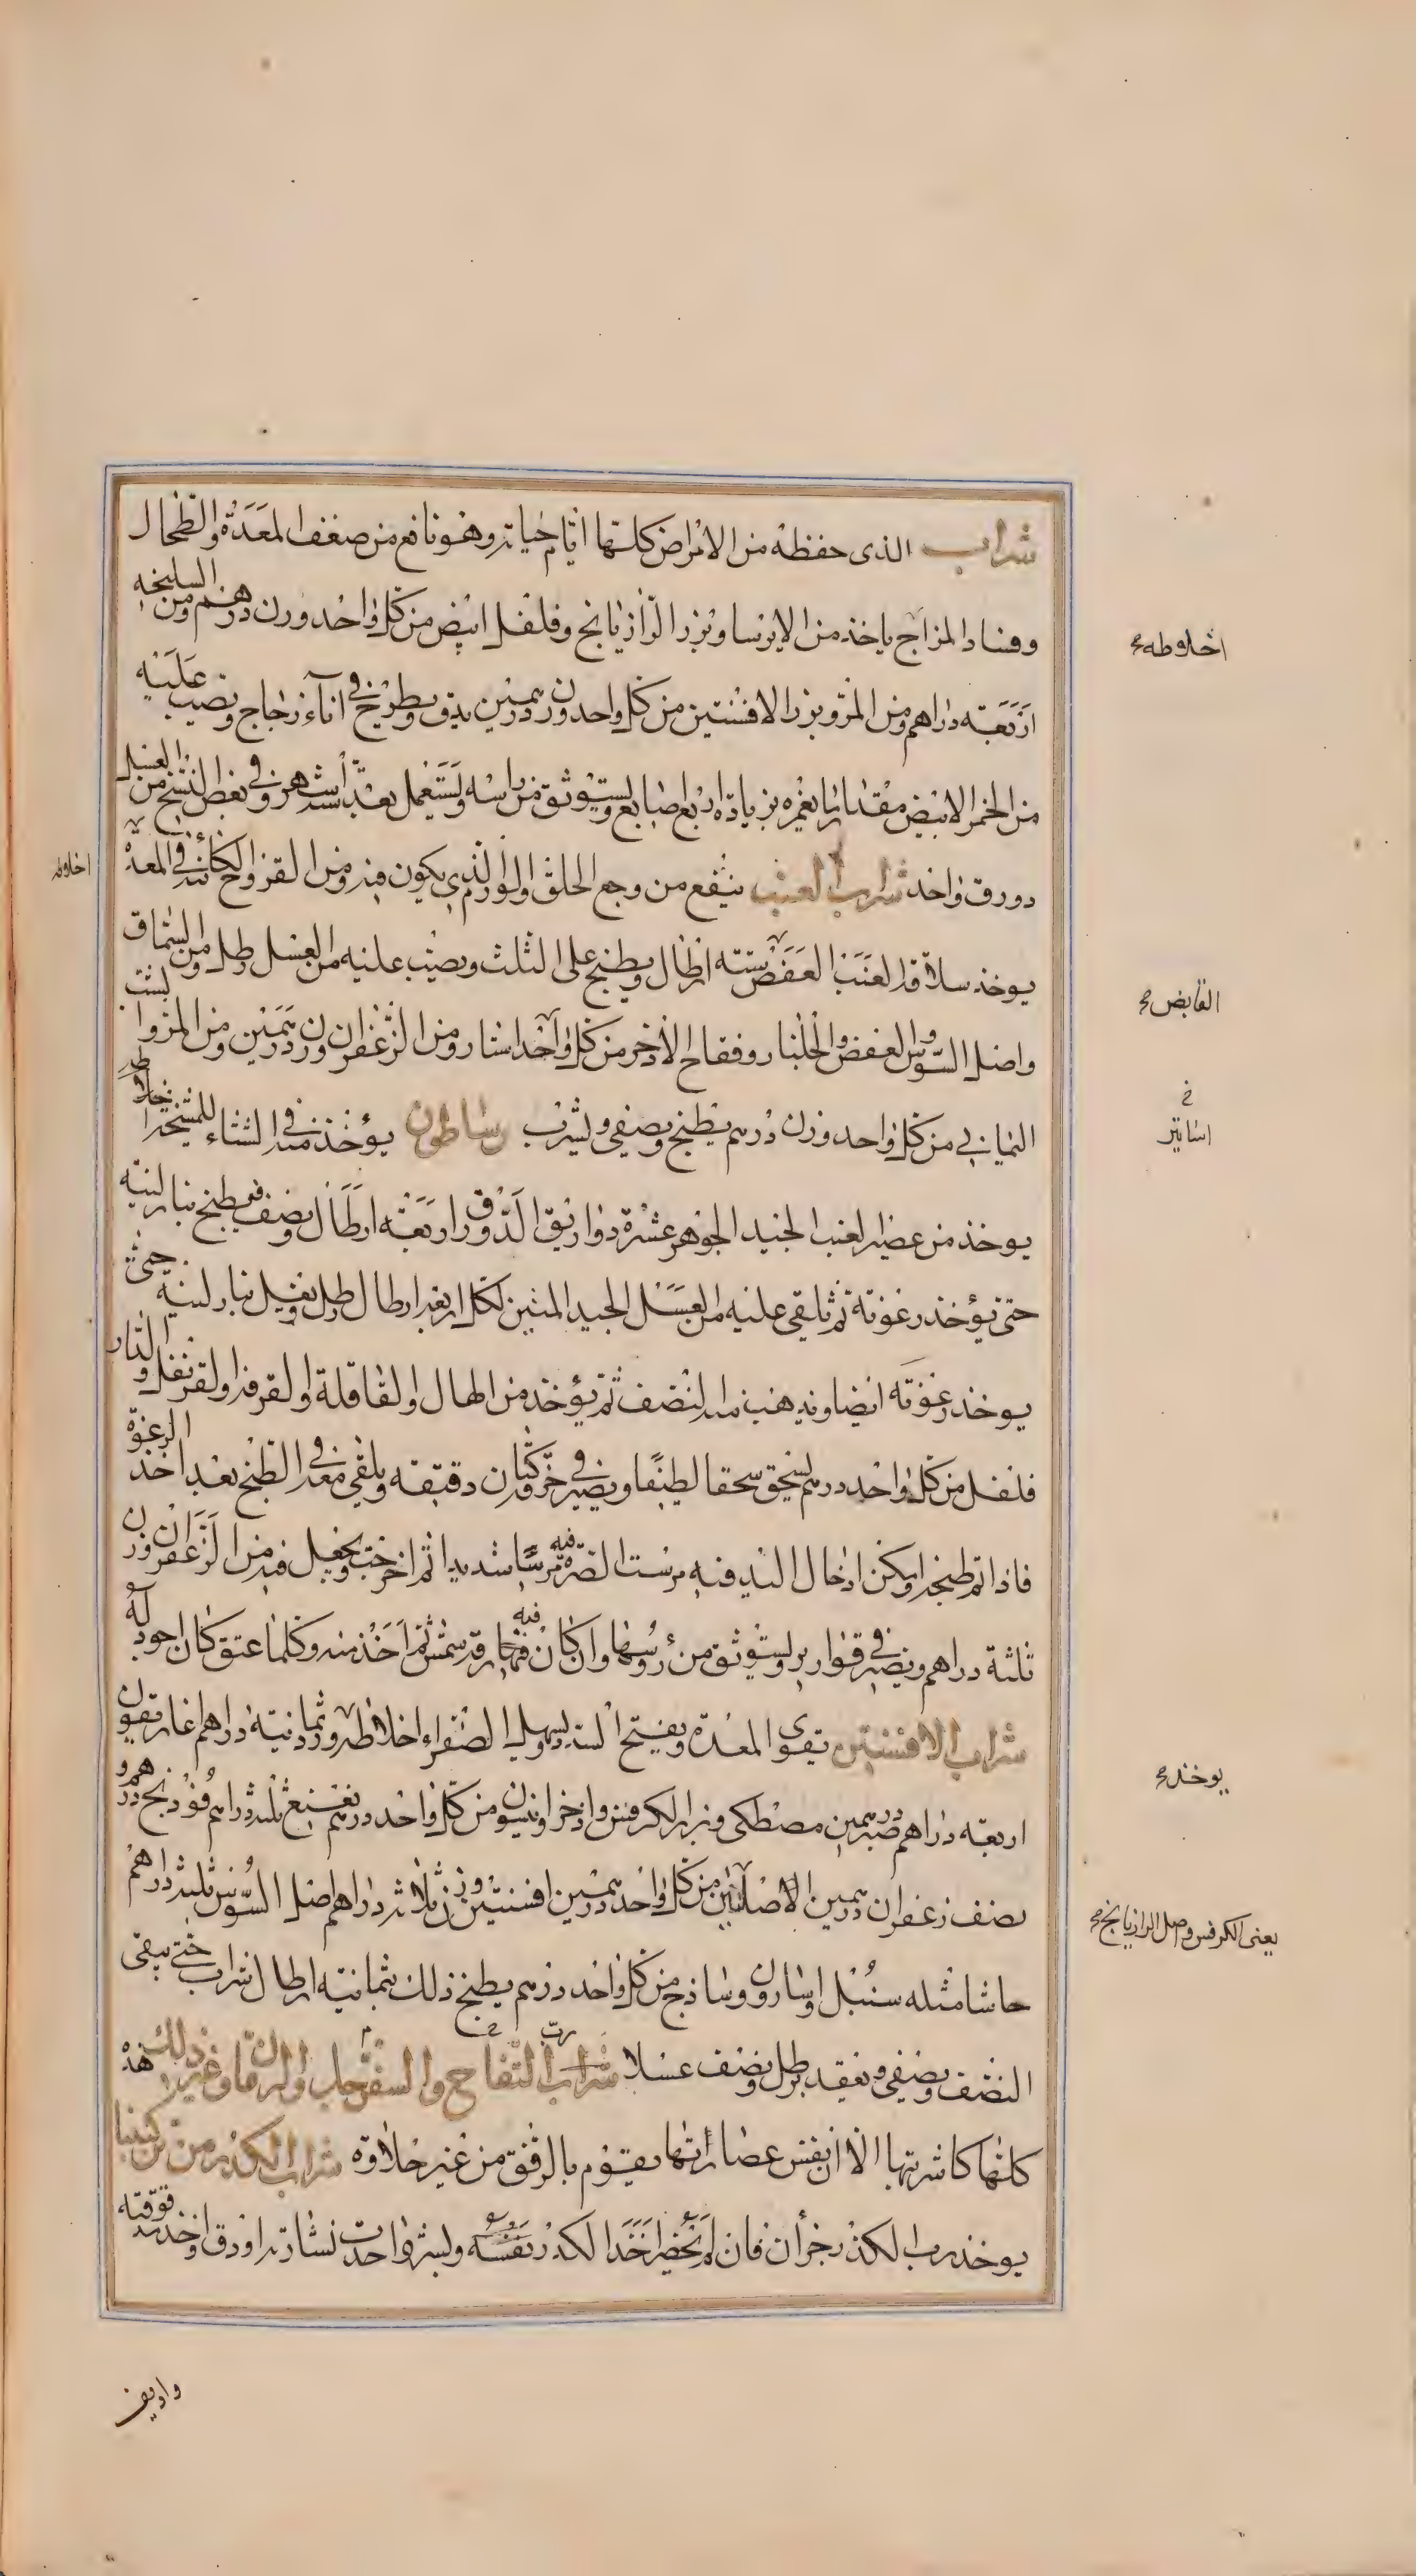 شراب الذى حفظه من الامراض كلها ايام حياته وهو نافع من ضعف المعدة والطحال
وفساد المزاج ياخذ من الايرسا وبزر الرازيانج وفلفل ابيض من كل واحد وزن درهم ومن السليخه
اربعة دراهم ومن المر وبزر الافسنتين من كل واحد وزن درهمين يدق ويطرح فى اناء زجاج ويصب عليه
من الخمر الابيض مقدار ما يغمره بزيادة اربع اصابع ويستوثق من راسه ويستعمل بعد اشهر وفى بعض النسخ من العسل
دورق واحد شراب العنب ينفع من وجع الحلق والورم الذى يكون فيه ومن القروح الكائنة فى المعدة
يوخذ سلاقة العنب العفص ستة ارطال ويطبخ على الثلث ويصب عليه من العسل رطل ومن السماق
واصل السوس والعفص والجلنار وفقاح الاذخر من كل واحد استار ومن الزعفران وزن درهمين ومن المر والشب
اليمانى من كل واحد وزن درهم يطبخ ويصفى ويشرب رساطون يؤخذ منه فى الشتاء للمشيخة
يوخذ من عصير العنب الجيد الجوهر عشرة دواريق الدورق اربعة ارطال ونصف فيطبخ بنار لينة
حتى يؤخذ رغوته ثم تلقى عليه من العسل الجيد المتين لكل اربعة ارطال رطل ويغلى بنار لينة حتى
يوخذ رغوته ايضا ويذهب منه النصف ثم يؤخذ من الهال والقاقلة والقرفة والقرنفل والدار
فلفل من كل واحد درهم يسحق سحقا لطيفا ويصير فى خرقة كتان دقيقه ويلقى معه فى الطبخ بعد اخذ الرغوة
فاذا تم طبخه وامكن ادخال اليد فيه مرست الصرة فيه مرسا شديدا ثم اخرجت ويجعل فيه من الزعفران وزن
ثلثة دراهم ويصير فى قوارير ويستوثق من رؤسها وان كان فيه شمس ثم اخذ منه وكلما عتق كان اجود له
شراب الافسنتين يقوى المعدة ويفتح السدد ويسهل الصفراء اخلاطه ورد ثمانية دراهم غاريقون
اربعة دراهم صبر درهمين مصطكى وبزر الكرفس واذخر وانيسون من كل واحد درهم نعنع ثلثة دراهم فوذنج درهم و
نصف زعفران درهمين الاصلين من كل واحد درهمين افسنتين وزن ثلاثة دراهم اصل السوس ثلثة دراهم
حاشا مثله سنبل واسارون وساذج من كل واحد درهم يطبخ ذلك بثمانية ارطال شراب حتى يبقى
النصف ويصفى ويعقد برطل ونصف عسلا شراب التفاح والسفرجل والرمان وغير ذلك هذه
كلها كاشربتها الا ان نفس عصاراتها يقوم بالرفق من غير حلاوة شراب الكدر من تركيبنا
يوخذ رب الكدر جزءان فان لم يحضر اخذ الكدر نفسه ونشر واحدت نشارته او دق واخذ
واديف
اخلاطه
القابض
خ
اساتير
يوخذ
يعنى الكرفس واصل الرازيانج